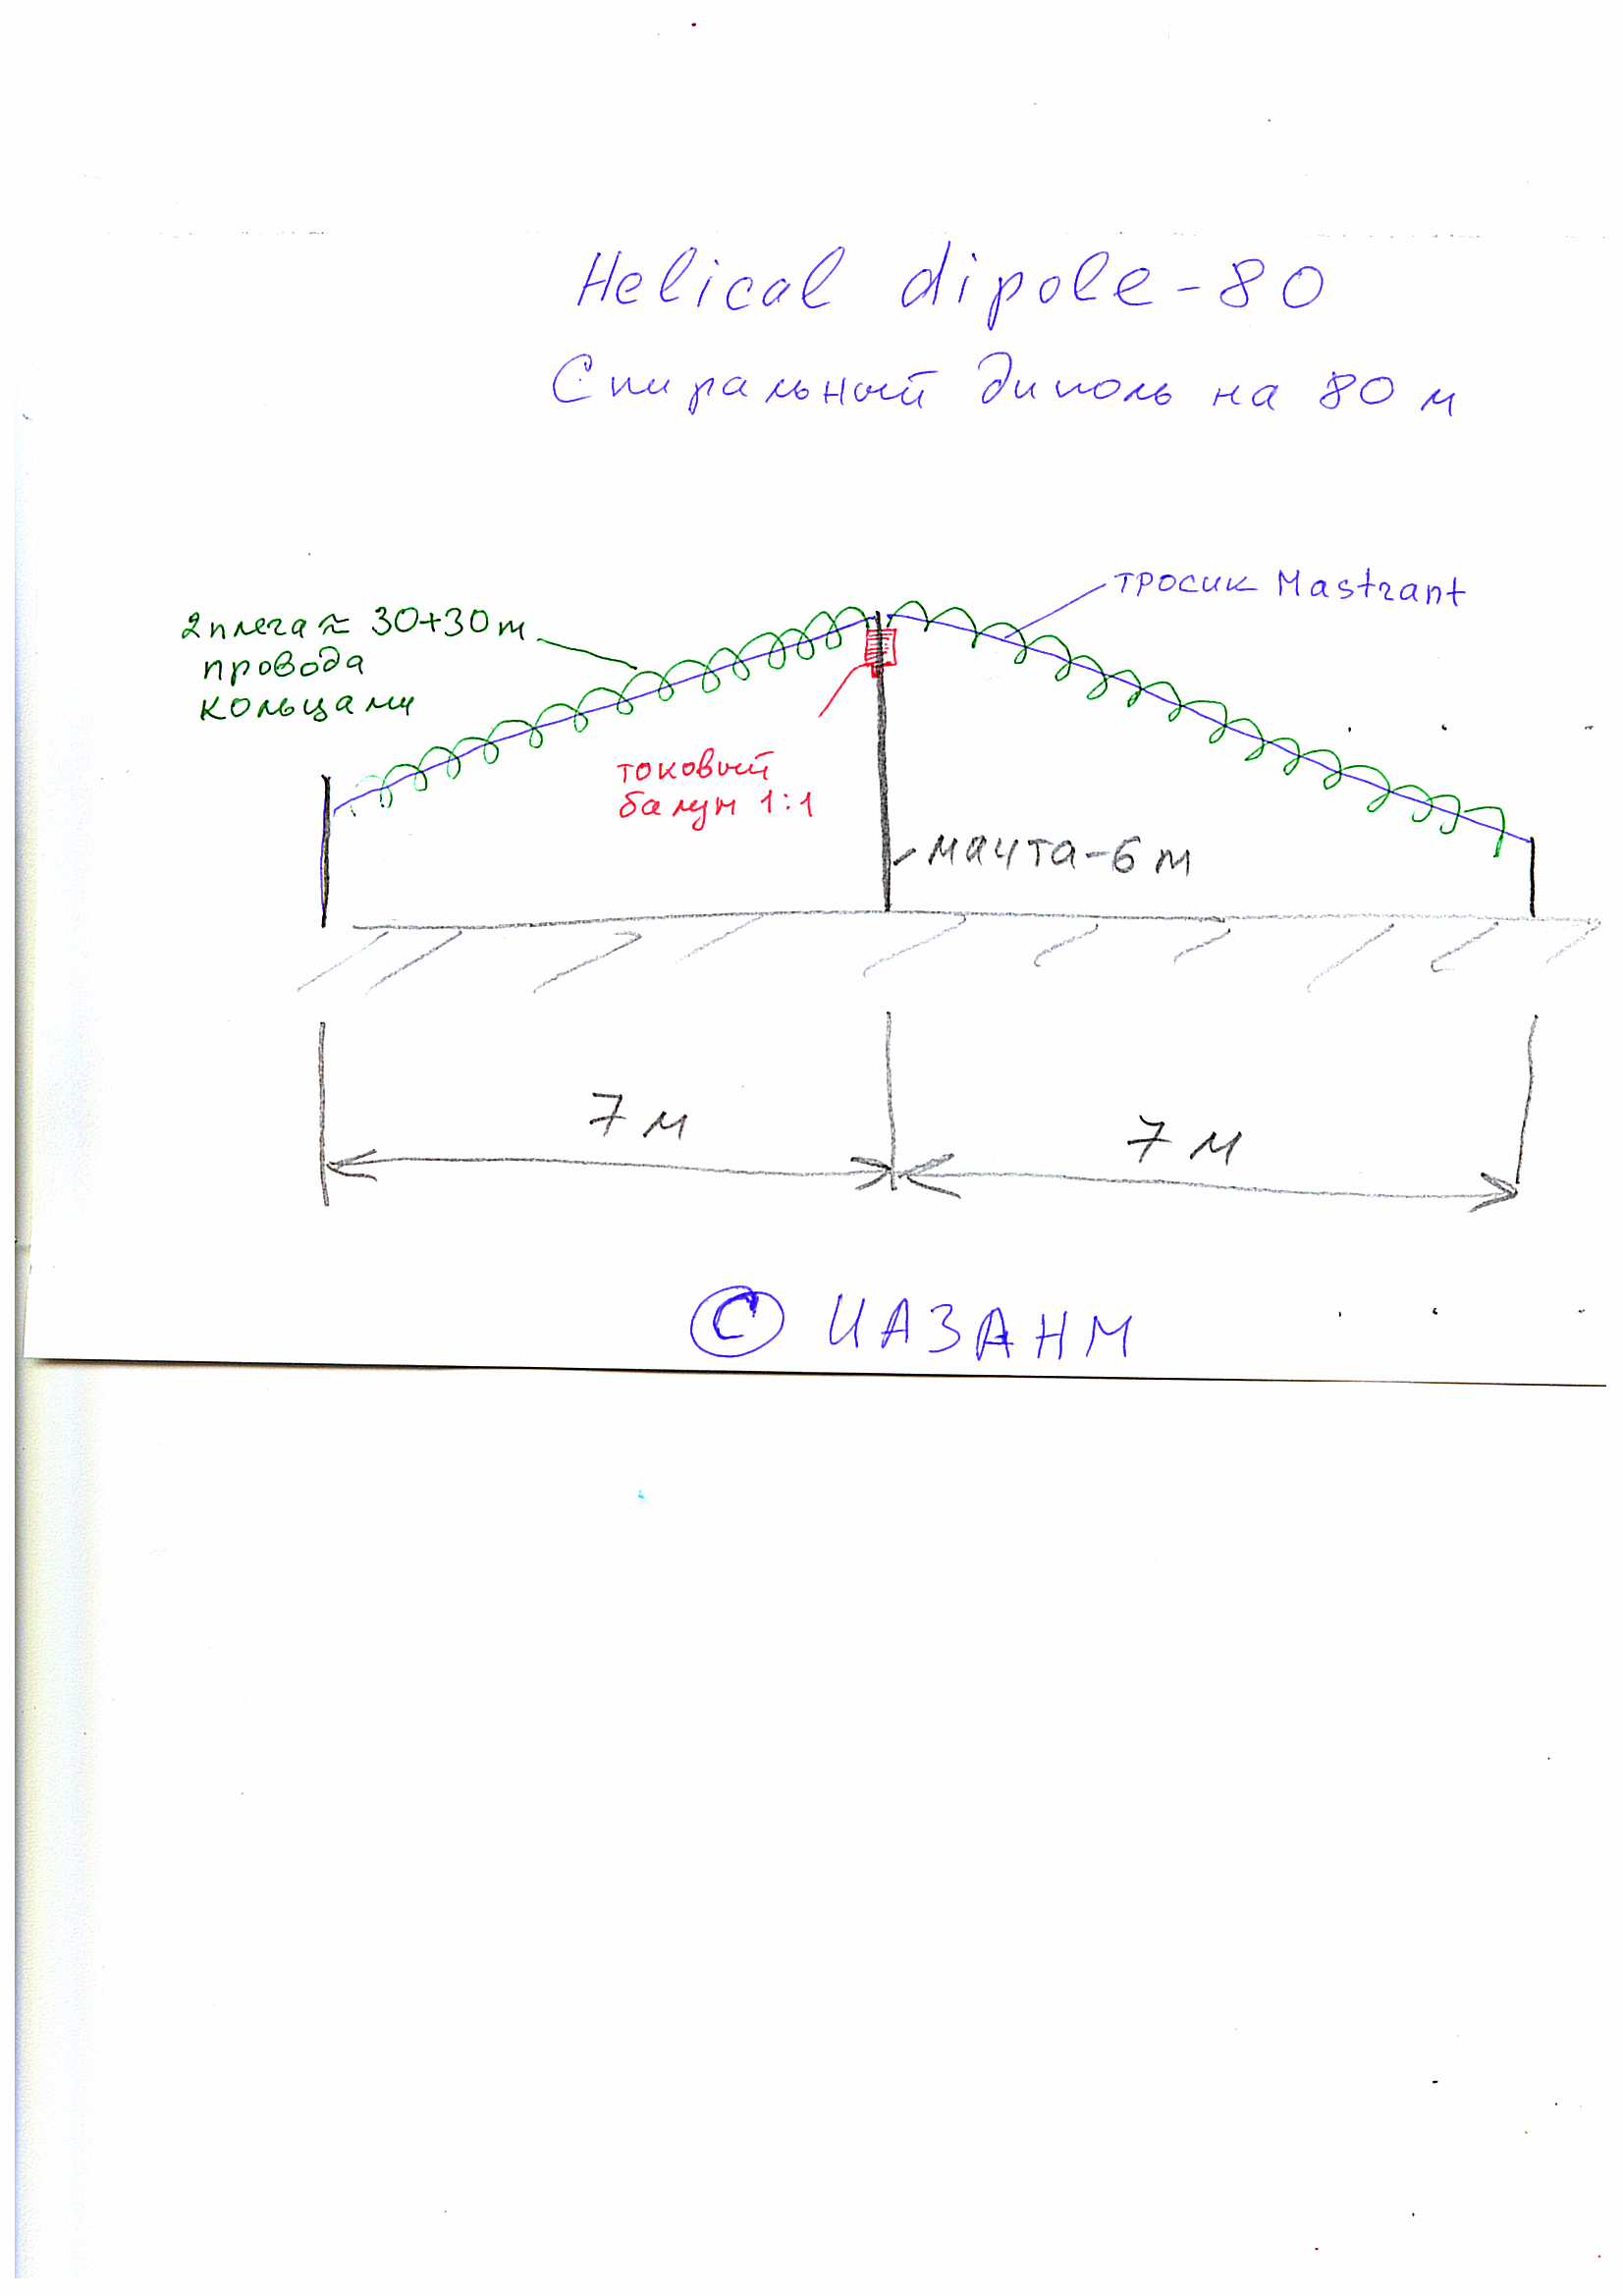 Helical dipole-80
Спиральный диполь на 80 м
тросик Mastrant
2 плеча ≈ 30+30 m
провода
кольцами
токовый
балун 1:1
мачта-6 m
7 м
7 м
© UA3AHM